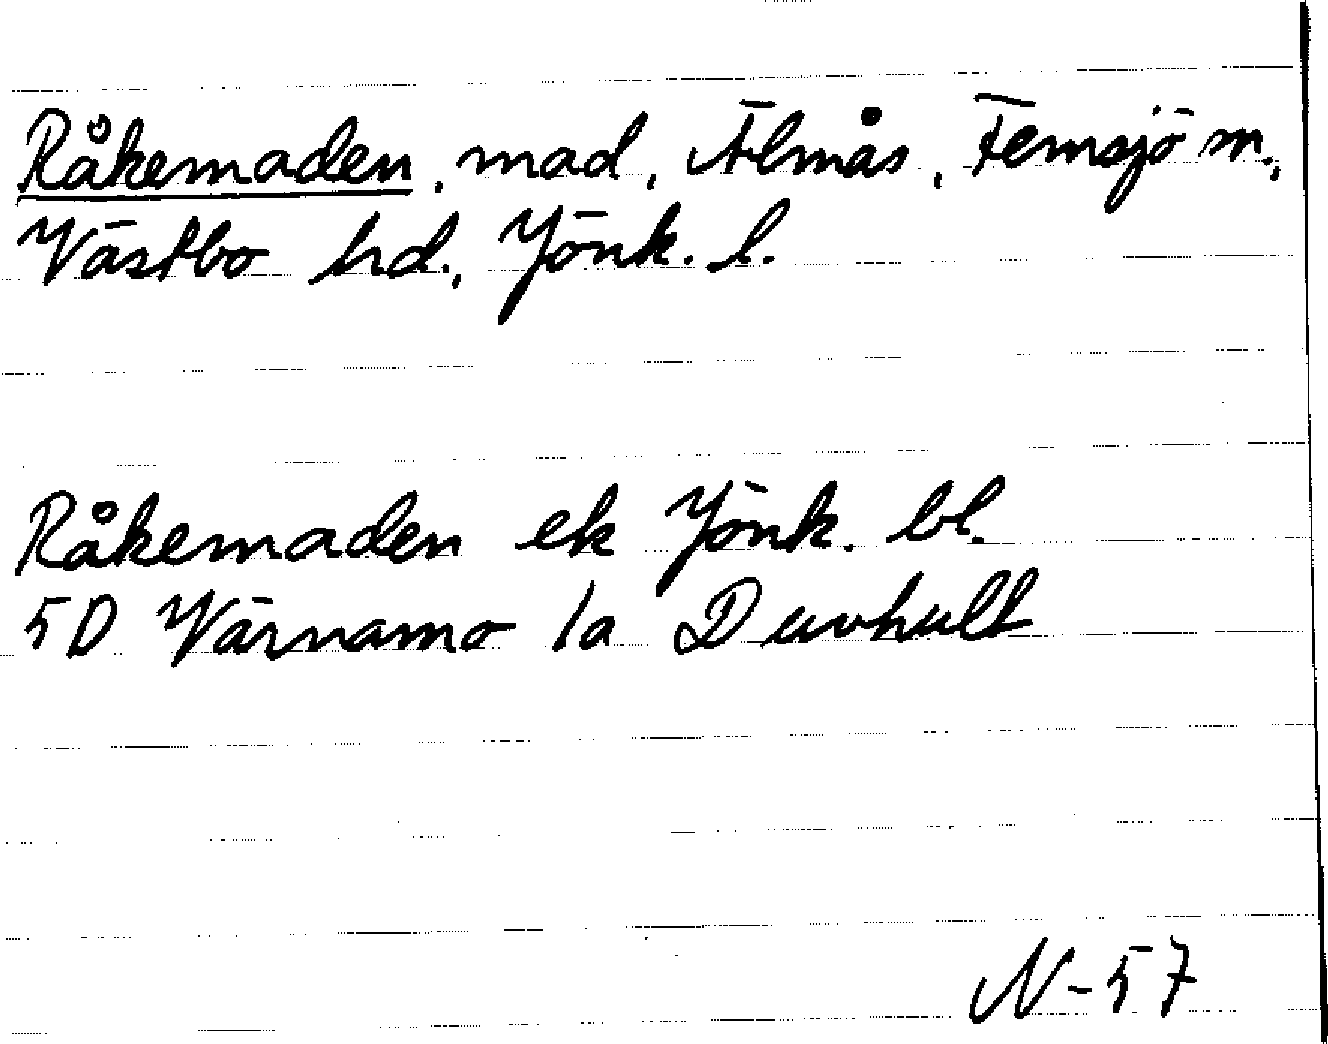 Råkemaden, mad, Älmås, Femsjö sn.,
Västbo hd., Jönk. l.
Råkemaden ek Jönk. bl.
5D Värnamo 1a Duvhult
N-57